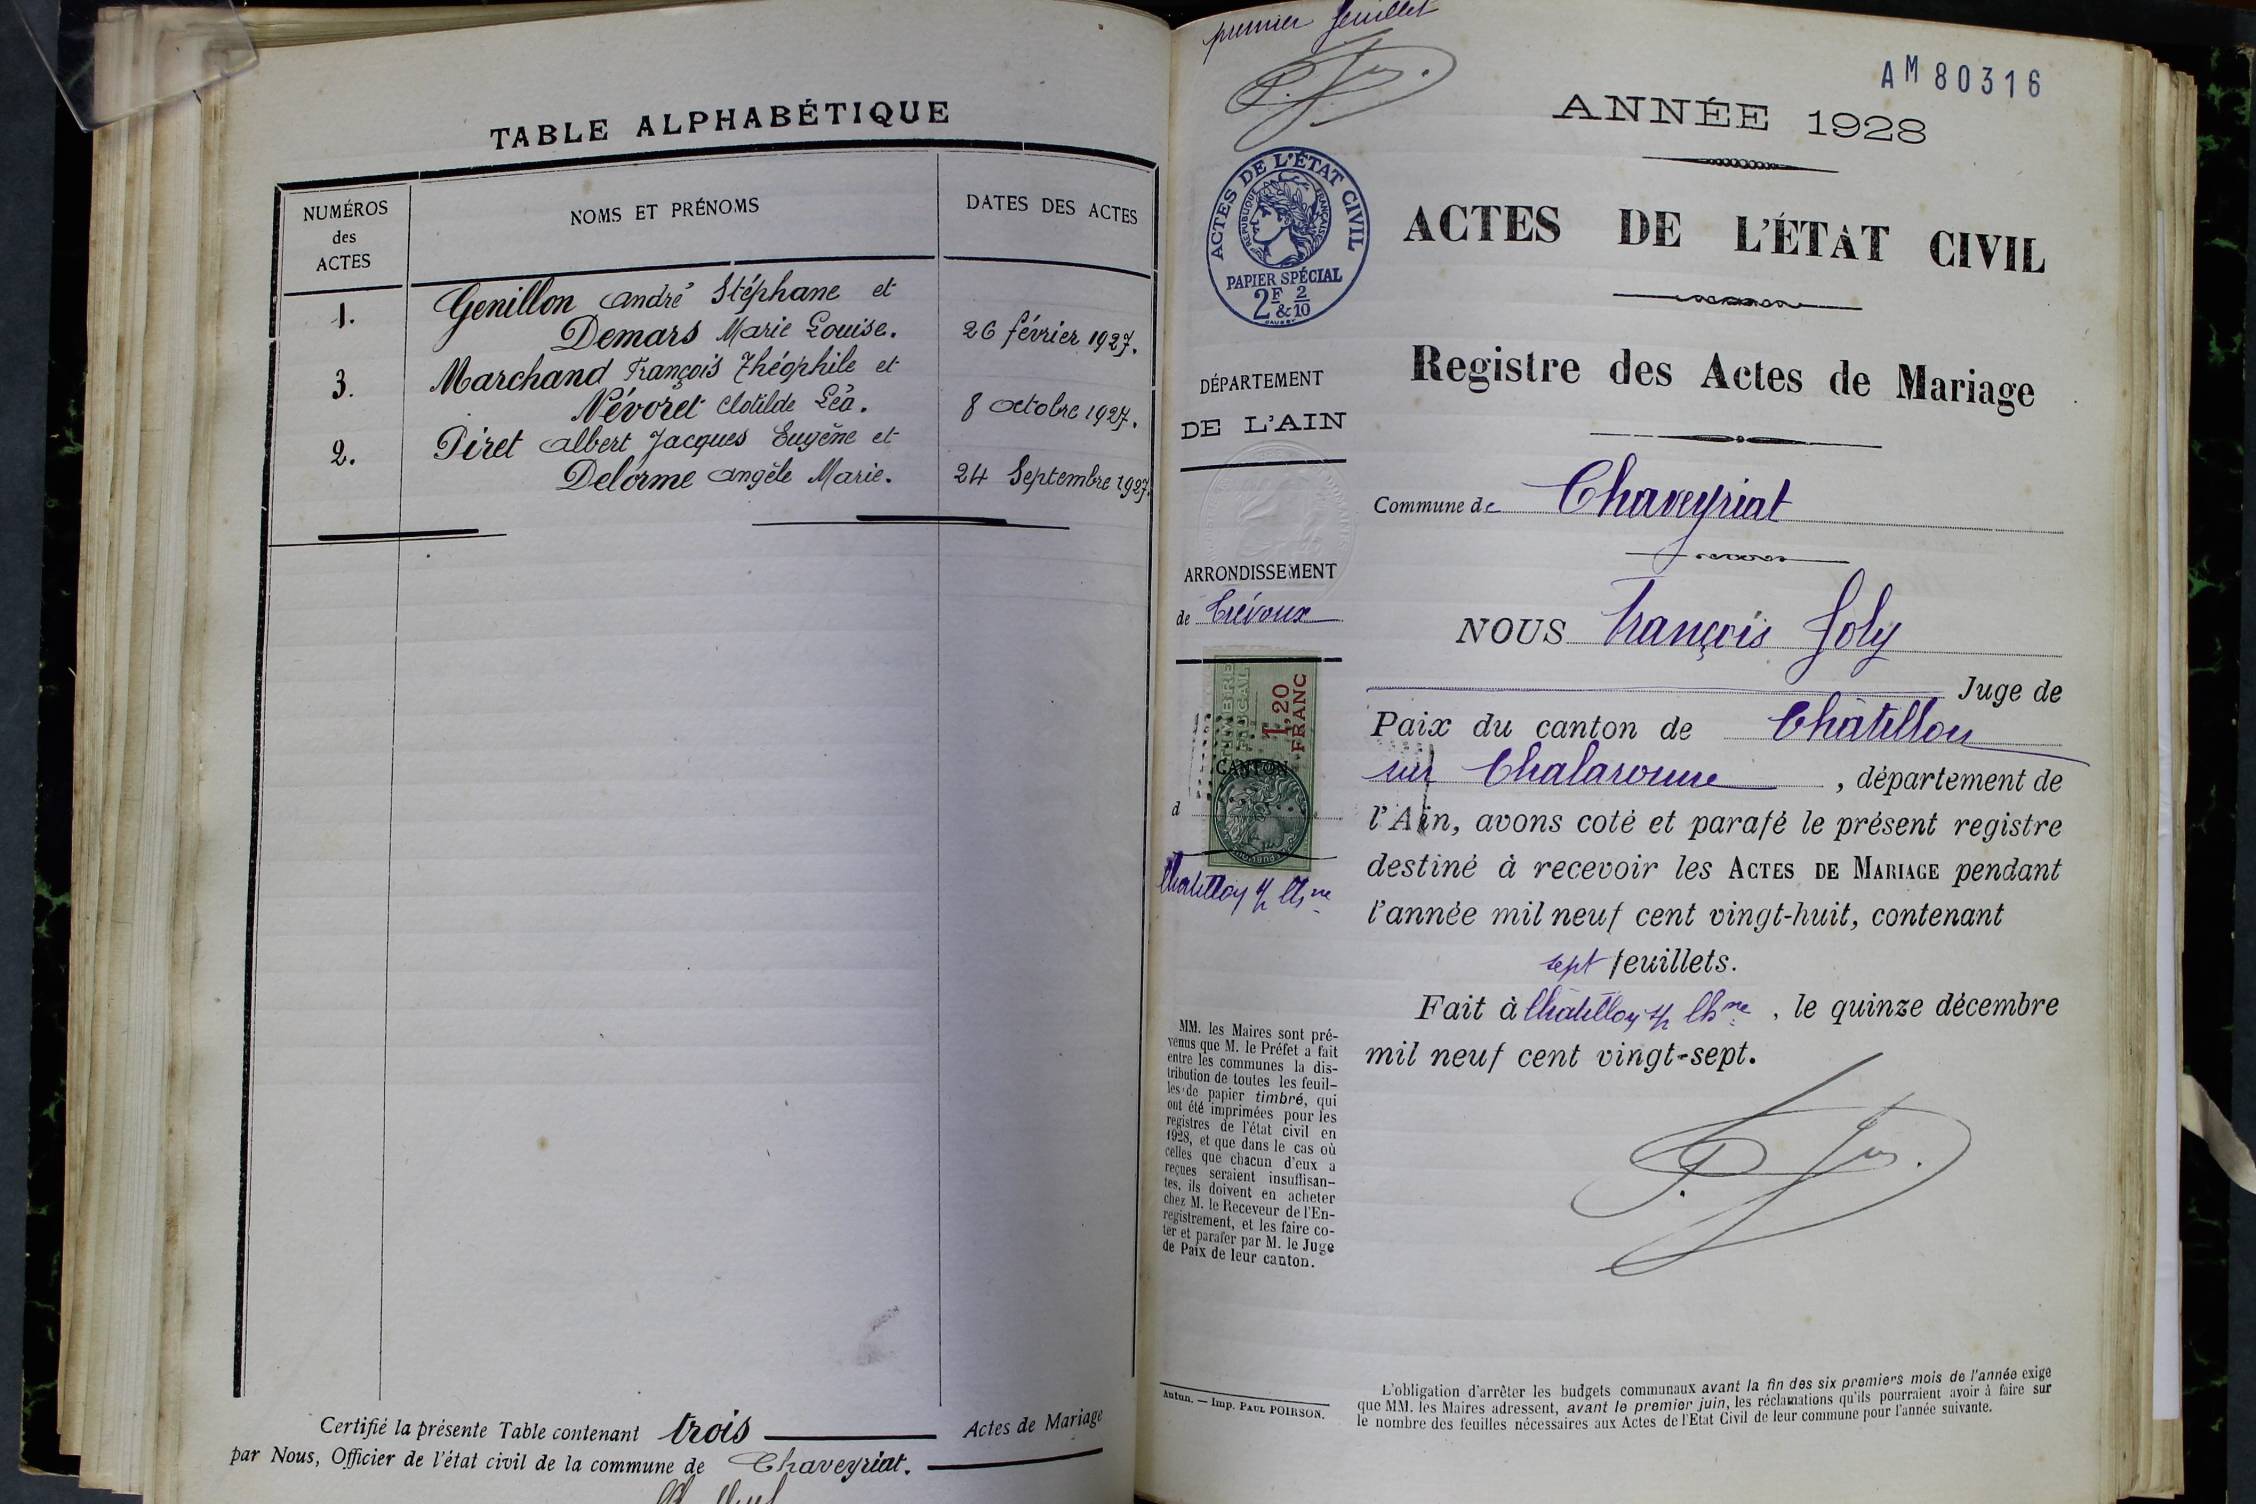 TABLE ALPHABÉTIQUE
NUMÉROS
des
ACTES
NOMS ET PRÉNOMS
DATES DES ACTES
1.
Genillon André Stéphane et
Demars Marie Louise.
26 février 1927.
3.
Marchand François Théophile et
Névoret Clotilde Léa.
8 octobre 1927.
2.
Piret Albert Jacques Eugène et
Delorme Angèle Marie.
24 Septembre 1927
Certifié la présente Table contenant trois Actes de Mariage
par Nous, Officier de l'état civil de la commune de Chaveyriat.
premier feuillet
AM 80316
ANNÉE 1928
ACTES DE L'ÉTAT CIVIL
RÉPUBLIQUE FRANÇAISE
PAPIER SPÉCIAL
2F & 2/10
ACTES DE L'ÉTAT CIVIL
Registre des Actes de Mariage
DÉPARTEMENT
DE L'AIN
Commune de Chaveyriat
ARRONDISSEMENT
de Trévoux
TIMBRE
FISCAL
1,20
FRANC
CANTON
d
Chatillon s/ Chne
NOUS François Joly
Juge de
Paix du canton de Châtillon
sur Chalaronne, département de
l'Ain, avons coté et parafé le présent registre
destiné à recevoir les ACTES DE MARIAGE pendant
l'année mil neuf cent vingt-huit, contenant
sept feuillets.
Fait à Châtillon s/ Chne, le quinze décembre
mil neuf cent vingt-sept.
MM. les Maires sont pré-
venus que M. le Préfet a fait
entre les communes la dis-
tribution de toutes les feuil-
les de papier timbré, qui
ont été imprimées pour les
registres de l'état civil en
1928, et que dans le cas où
celles que chacun d'eux a
reçues seraient insuffisan-
tes, ils doivent en acheter
chez M. le Receveur de l'En-
registrement, et les faire co-
ter et parafer par M. le Juge
de Paix de leur canton.
Autun. — Imp. PAUL POIRSON.
L'obligation d'arrêter les budgets communaux avant la fin des six premiers mois de l'année exige
que MM. les Maires adressent, avant le premier juin, les réclamations qu'ils pourraient avoir à faire sur
le nombre des feuilles nécessaires aux Actes de l'Etat Civil de leur commune pour l'année suivante.